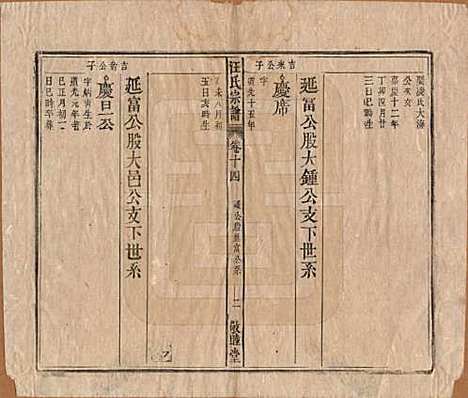 吉來公子
娶淩氏大海
公次女
嘉慶十二年
丁卯四月廿
三日巳時生
延富公股大鍾公支下世系
慶席
字
道光十五年
汪氏宗譜
卷十四
延富公系
二
敬睦堂
乙未八月初
五日亥時生
延富公股大邑公支下世系
吉俞公子
慶昌公
字炳南生於
道光元年辛
巳正月初一
日巳時卒葬